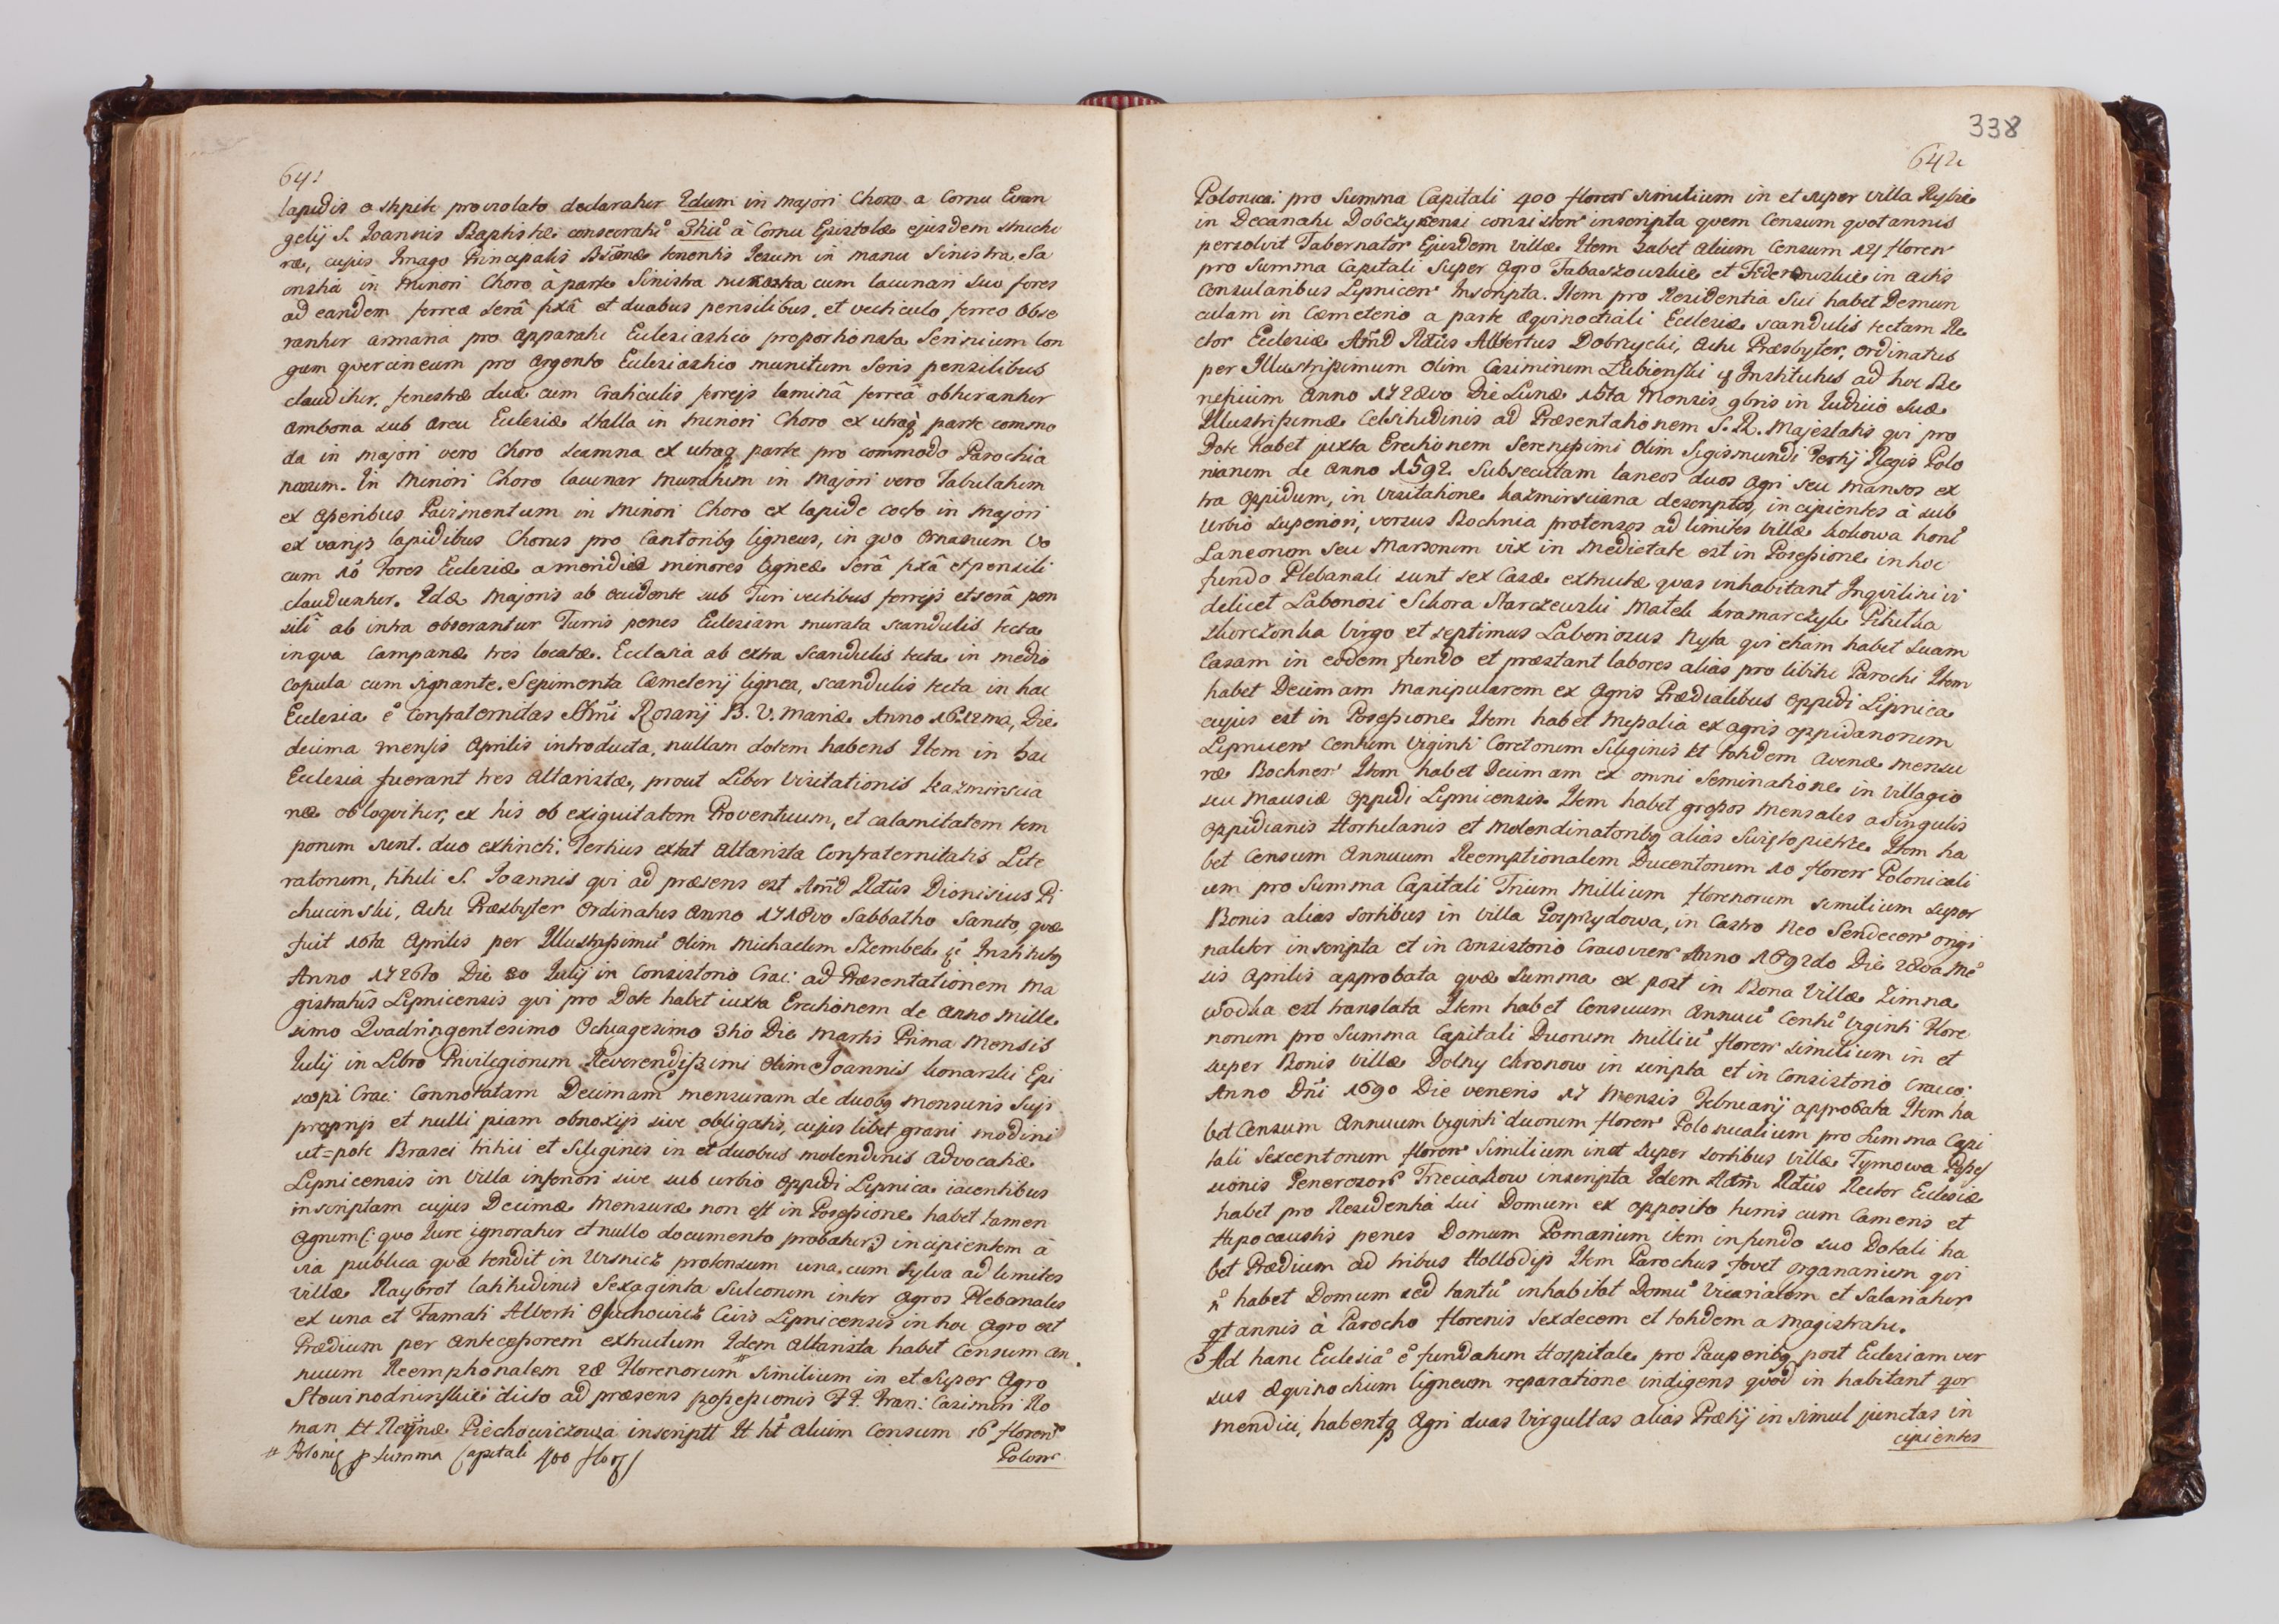 641
lapidis a stipite pro violato declaratur 2dum in majori Choro a Cornu Evan
gelij S. Joannis Baptistæ consecratũ 3tiũ à Cornu Epistolæ ejusdem structu
ræ, cujus Imago Principalis tenentis Jesum in manu Sinistra, Sa
cristia in Minori Choro à parte Sinistra murata cum lacunari suo fores
ad eandem ferreæ serâ fixâ et duabus pensilibus, et vecticulo ferreo obse
rantur armaria pro apparatu Ecclesiastico proportionata Scrinium lon
gum quercineum pro argento Ecclesiastico munitum Seris pensilibus
clauditur, fenestræ duæ cum Craticulis ferrejs laminâ ferreâ obturantur
Ambona sub arcu Ecclesiæ Stalla in minori Choro ex utraq parte commo
da in majori vero Choro scamna ex utraq parte pro commodo Parochia
norum. In Minori Choro lacunar muratum in Majori vero Tabulatum
ex asseribus Pavimentum in Minori Choro ex lapide cocto in majori
ex varijs lapidibus Chorus pro Cantoribq ligneus, in quo Organum Vo
cum 10 Fores Ecclesiæ a meridie minores ligneæ Serâ fixâ et pensili
clauduntur. Idæ Majoris ab occidente sub Turri vectibus ferrejs et serâ pen
sili ab intra obserantur Turris penes Ecclesiam murata scandulis tecta
in qua Campanæ tres locatæ. Ecclesia ab extra Scandulis tecta in medio
Copula cum signante. Sepimenta Cæmeterij lignea, scandulis tecta in hac
Ecclesia ẽ Confraternitas SSmi Rosarij B. V. Mariæ Anno Die
decima mensis Aprilis introducta, nullam dotem habens Item in hac
Ecclesia fuerant tres Altaristæ, prout Liber Visitationis Kazmirscia
næ obloquitur, ex his ob exiguitatem Proventuum, et calamitatem tem
porum sunt duo extincti. Tertius extat Altarista Confraternitatis Lite
ratorum, tituli S. Joannis qui ad præsens est Dionisius Pi
chucinski, Actu Præsbyter Ordinatus Anno 1718vo Sabbatho Sancto, quæ
fuit 16ta Aprilis per Illustrissimũ olim Michaelem Szembek Institutq
Anno 1726to Die 20 Julij in Consistorio Crac: ad Præsentationem Ma
gistratũs Lipnicensis qui pro Dote habet iuxta Erectionem de Anno Mille
simo Quadringentesimo Octuagesimo 3tio Die Martis Prima Mensis
Julij in Libro Privilegiorum Reverendissimi olim Joannis Konarski Epi
scopi Crac: Connotatam Decimam mensuram de duobq Mensuris Sujs
proprijs et nulli piam obnoxijs sive obligatis, cujus libet grani modini
ut=pote Brasei tritici et Siliginis in et duobus molendinis Advocatiæ
Lipnicensis in Villa inferiori sive sub urbio Oppidi Lipnica iacentibus
inscriptam cujus Decimæ Mensuræ non est in Possessione habet tamen
Agrum (: quo Jure ignoratur et nullo documento probatur :) incipientem à
via publica quæ tendit in Wisnicz protensum una cum sylva ad limites
Villæ Raybrot latitudinis Sexaginta Sulcorum inter Agros Plebanales
ex una et Famati Alberti Civis Lipnicensis in hoc Agro est
Prædium per antecessorem extructum Idem Altarista habet Censum An
nuum Reemptionalem 28 Florenorum # similium in et Super Agro
dicto ad præsens possessionis FF. Fran: Casimiri Ro
man Et Reginæ Piechowiczowa inscriptt It ht alium Censum 16 floren
# Polon p summa Capitali 400 flor
Polon
338
642
Polonica: pro Summa Capitali 400 floren similium in et super villa Rybie
in Decanatu Dobczycensi consisten inscripta quem Censum quotannis
persolvit Tabernator Ejusdem Villæ Item habet alium Censum 14 floren
pro Summa Capitali Super Agro Tabaszowskie et Federowskie in Actis
Consularibus Lipnicen Inscripta. Item pro Residentia Sui habet Domun
culam in Cæmeterio a parte æquinoctiali Ecclesiæ scandulis tectam Re
ctor Ecclesiæ Albertus Dobrzycki, Actu Præsbyter, Ordinatus
per Illustrissimum olim Casimirum Łubienski Institutus ad hoc Be
neficium Anno 1728vo Die Lunæ 15ta Mensis 9bris in Judicio Suæ
Illustrissimæ Celsitudinis ad Præsentationem S. R. Majestatis qui pro
Dote habet juxta Erectionem Serenissimi olim Sigismundi Tertij Regis Polo
niarum de Anno 1592 Subsecutam laneos duos agri seu mansos ex
tra oppidum, in Visitatione Kazmirsciana descriptos, incipientes à sub
urbio superiori, versus Bochnia protensos ad limites Villæ horũ
Laneorum seu Mansorum vix in Medietate est in Possessione in hoc
fundo Plebanali sunt sex Casæ extructæ quas inhabitant Inquilini vi
delicet Laboriosi Sikora Starczewski Matek Kramarczyk Pikulka
Skorczonka Virgo et septimus Laboriosus Ryta qui etiam habet Suam
Casam in eodem fundo et præstant labores alias pro libitu Parochi Item
habet Decimam Manipularem ex Agris Prædialibus Oppidi Lipnica
cujus est in Possessione Item habet Missalia ex agris oppidanorum
Lipnicen Centum Viginti Coretorum Siliginis Et totidem Avenæ Mensu
ræ Bochnen Item habet Decimam ex omni Seminatione in Villagio
seu Mausiæ Oppidi Lipnicensis. Item habet grossos mensales a singulis
oppidianis Hortulanis et Molendinatoribq alias Swiętopietrze Item ha
bet Censum Annuum Reemptionalem Ducentorum 10 floren Polonicali
um pro Summa Capitali Trium Millium florenorum similium Super
Bonis alias sortibus in Villa Gosprzydowa, in Castro Neo Sendecen origi
naliter inscripta et in Consistorio Cracovien Anno 1692do Die 28va Mẽ
sis Aprilis approbata quæ Summa ex post in Bona Villæ Zimna
wodka est translata Item habet Censuum Annuũ Centũ Viginti Flore
norum pro Summa Capitali Duorum Milliũ floren similium in et
super Bonis Villæ Dolny Chronow in scripta et in Consistorio Cracov:
Anno Dñi 1690 Die veneris 17 Mensis Februarij approbata Item ha
bet Censum Annuum Viginti duorum floren Polonicalium pro Summa Capi
tali Sexcentorum floren Similium in et super sortibus Villæ Tymowa Posses
sionis Generosorũ Trzeciakow inscripta Idem Rector Ecclesiæ
habet pro Residentia sui Domum ex opposito turris cum Cameris et
Hypocaustis penes Domum Pomarium item in fundo suo Dotali ha
bet Prædium ad tribus Hollodijs Item Parochus fovet organarium qui
ñ habet Domum sed tantũ inhabitat Domũ Vicarialem et Salariatur
qt annis à Parocho florenis sexdecem et totidem a Magistratu.
Ad hanc Ecclesiã ẽ fundatum Hospitale pro Pauperibq post Ecclesiam ver
sus Æquinoctium ligneum reparatione indigens quod in habitant quor
mendici, habentq Agri duas Virgultas alias Prętij in simul junctas in
cipientes